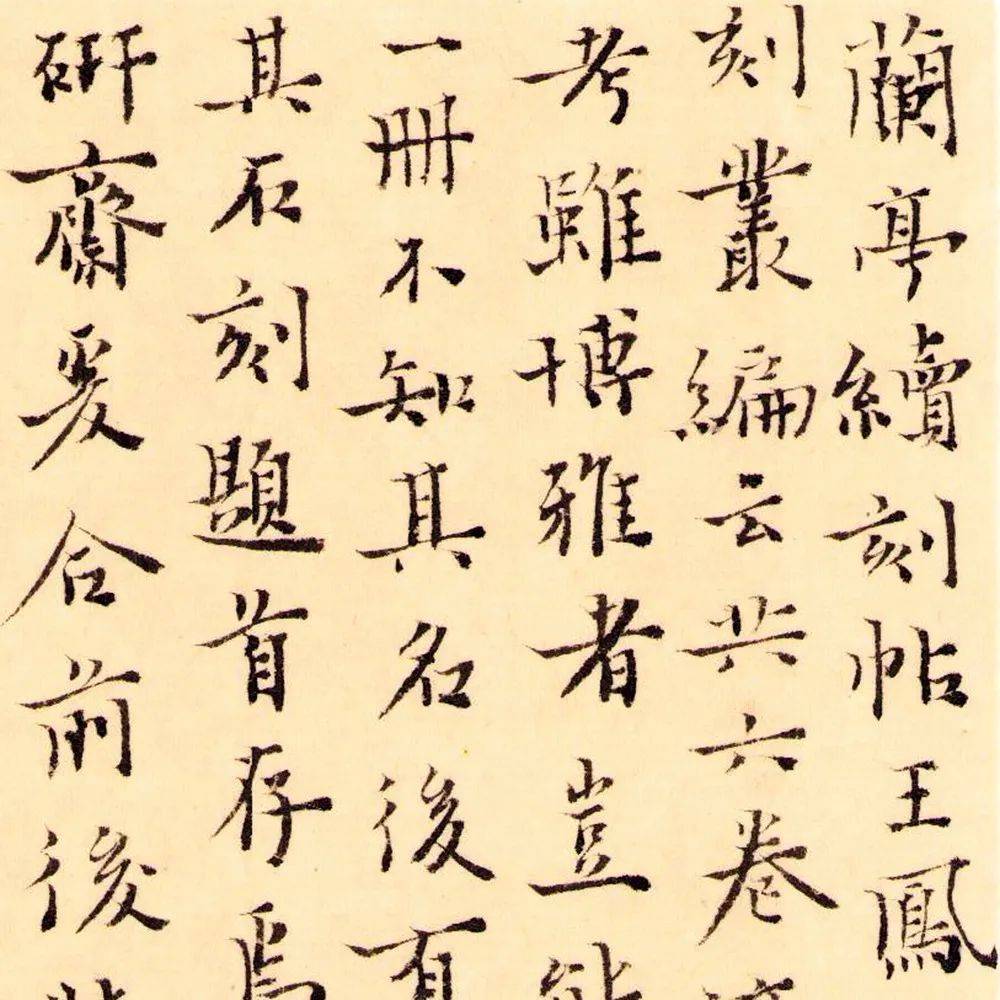 蘭亭續刻帖王鳳
刻叢編云共六卷
考雖博雅者豈能
一冊不知其名後有
其石刻題首存焉
研齋爰合前後